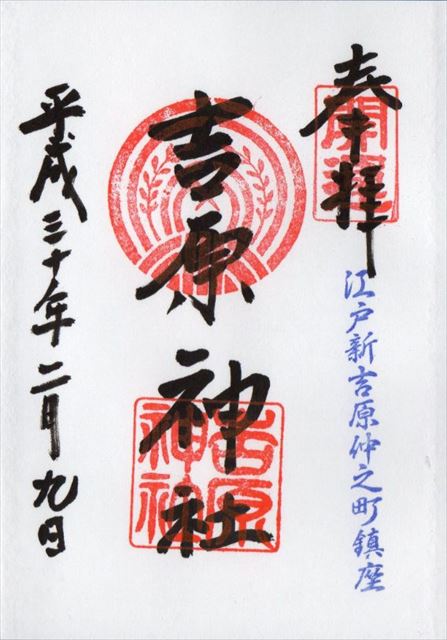 奉拝
開運
江戸新吉原仲之町鎮座
吉原神社
吉原神社
平成三十年二月九日